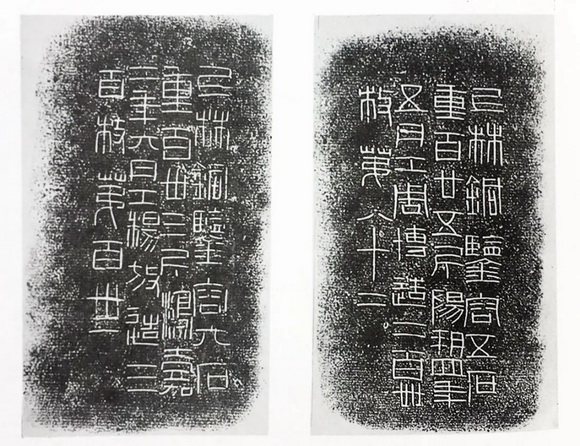 上林銅鑒容五石
重百廿五斤陽朔四年
五月工周博造二百卌
枚第八十二
上林銅鑒容六石
重百卅二斤鴻嘉
二年六月工楊放造三
百枚第百卅